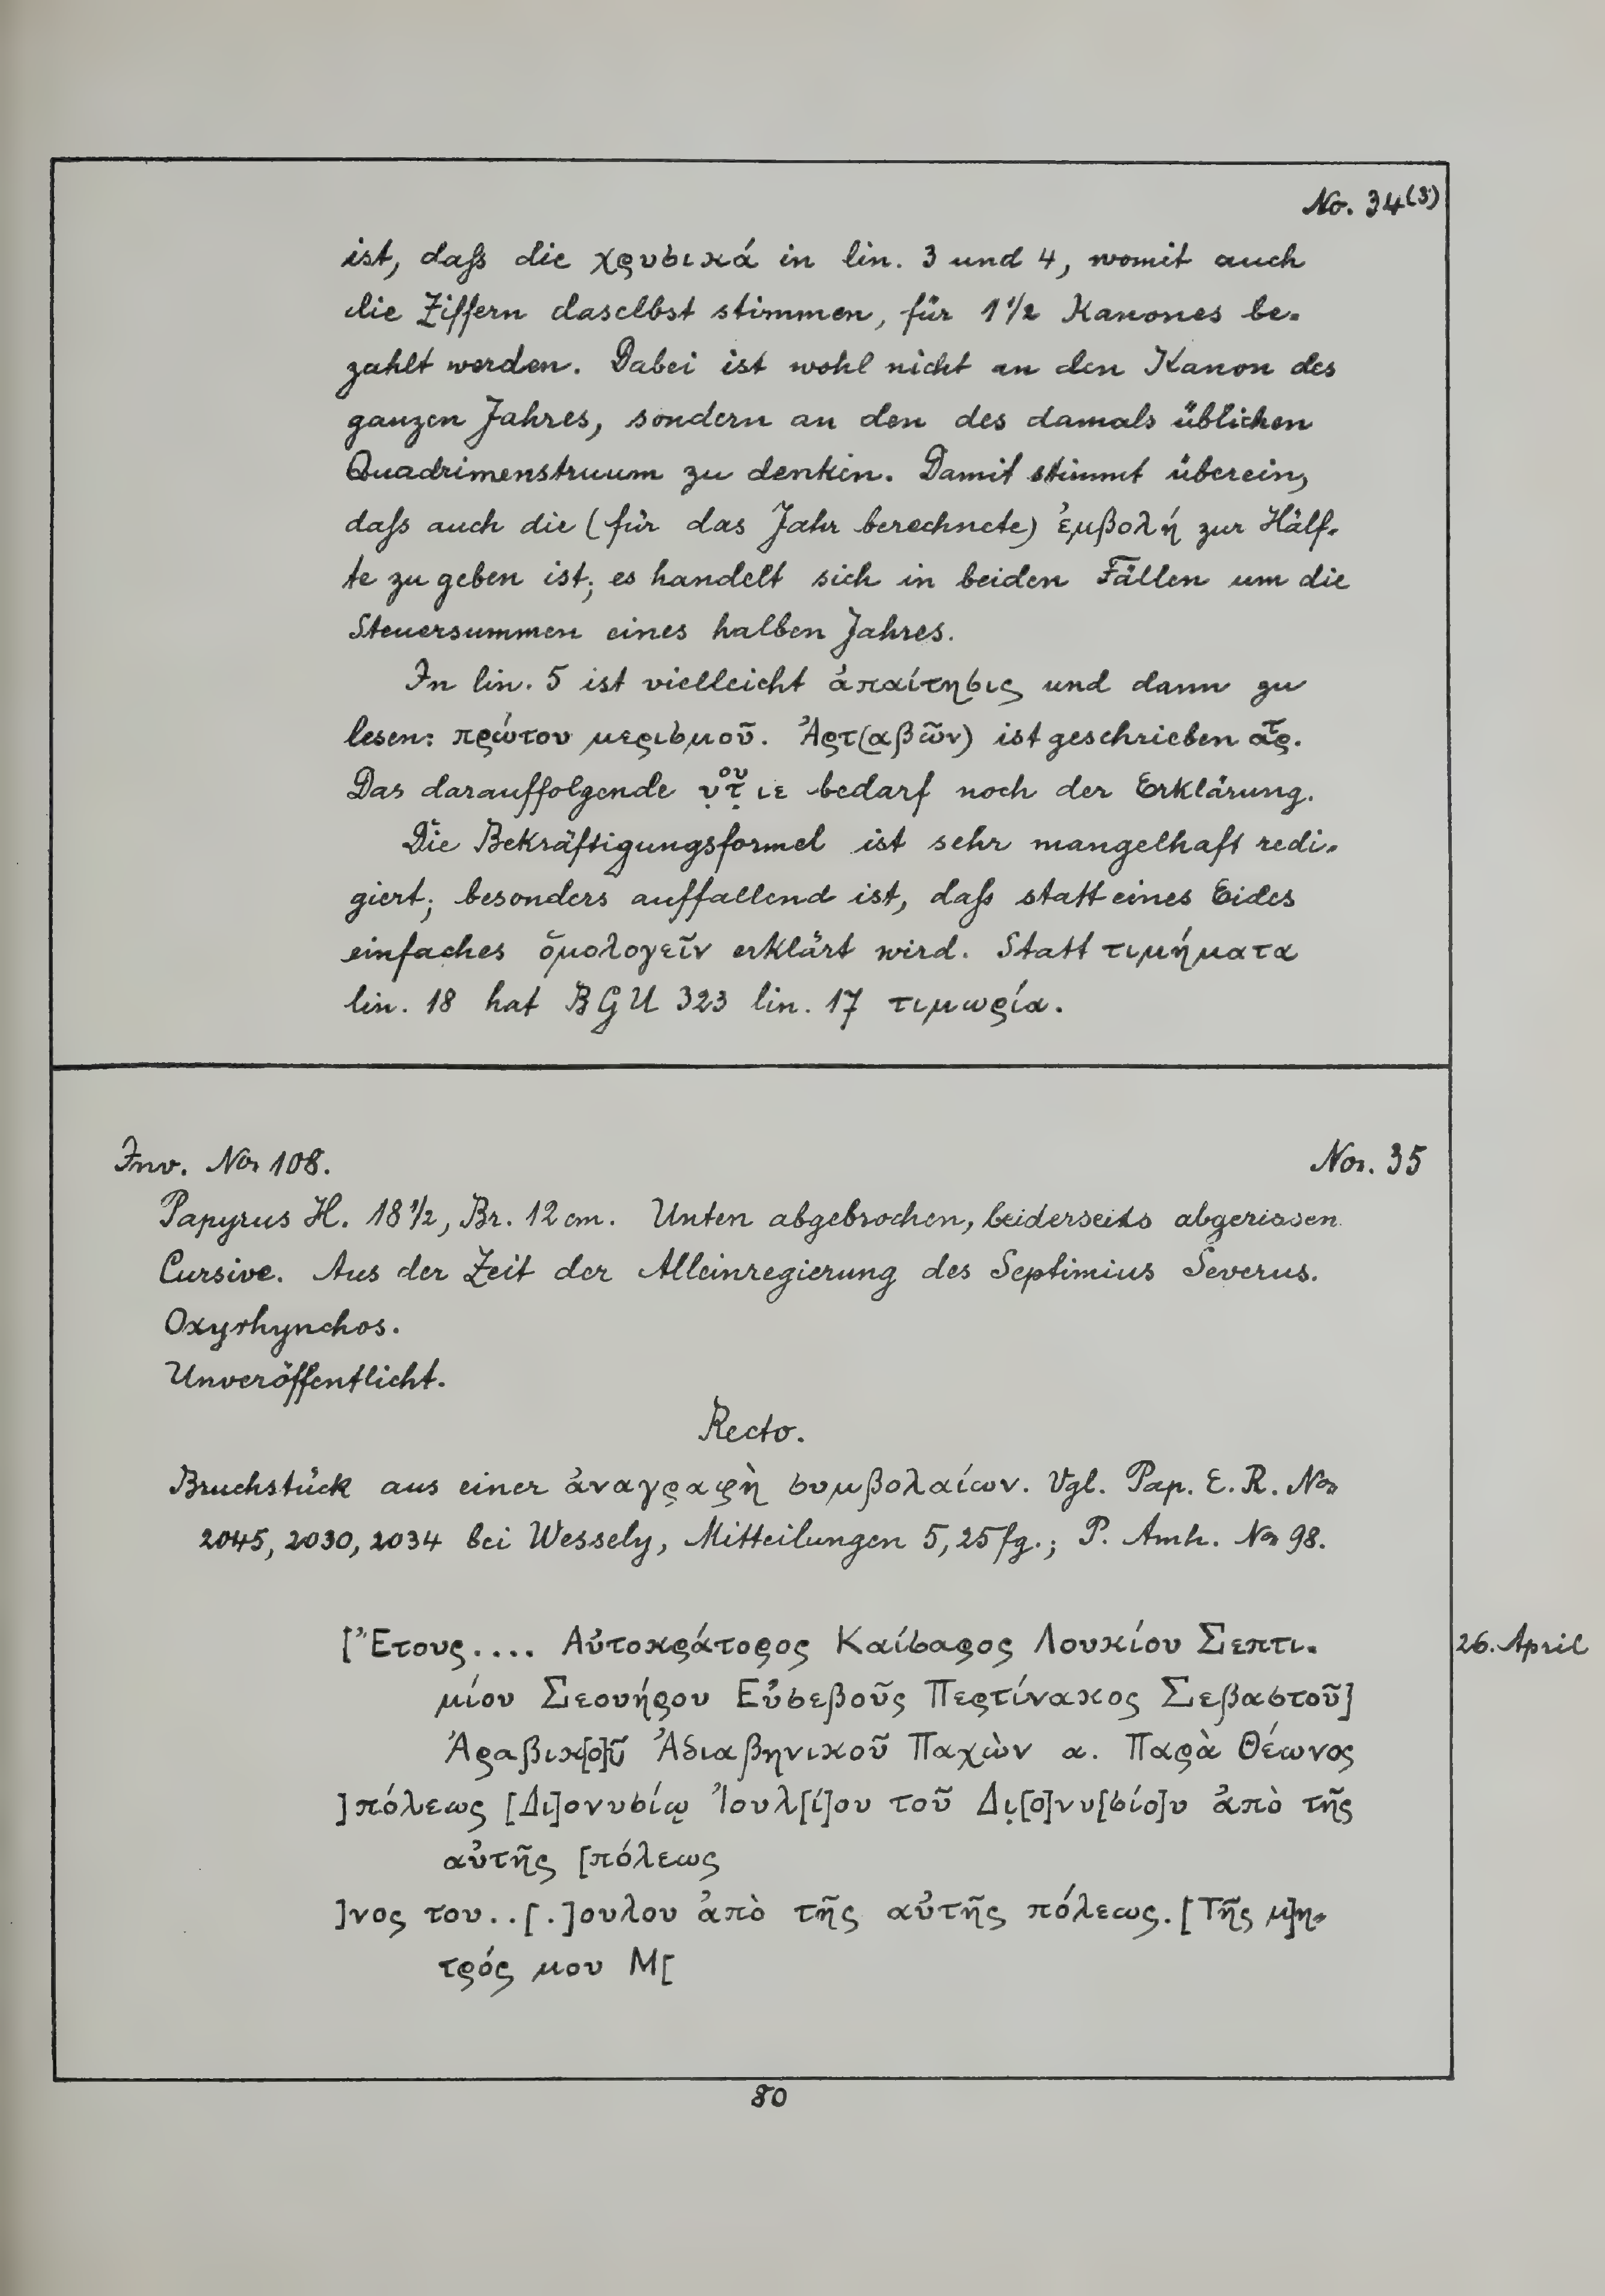 No. 34(3)
ist, daß die χρυσικά in lin. 3 und 4, womit auch
die Ziffern daselbst stimmen, für 1 1/2 Kanones be-
zahlt werden. Dabei ist wohl nicht an den Kanon des
ganzen Jahres, sondern an den des damals üblichen
Quadrimenstruum zu denken. Damit stimmt überein,
daß auch die (für das Jahr berechnete) ἐμβολή zur Hälf-
te zu geben ist; es handelt sich in beiden Fällen um die
Steuersummen eines halben Jahres.
In lin. 5 ist vielleicht ἀπαίτησις und dann zu
lesen: πρώτου μερισμοῦ. Ἀρτ(αβῶν) ist geschrieben
Das darauffolgende ιε bedarf noch der Erklärung.
Die Bekräftigungsformel ist sehr mangelhaft redi-
giert; besonders auffallend ist, daß statt eines Eides
einfaches ὁμολογεῖν erklärt wird. Statt τιμήματα
lin. 18 hat BGU 323 lin. 17 τιμωρία.
Inv. No. 108.
No. 35
Papyrus H. 18 1/2, Br. 12 cm. Unten abgebrochen, beiderseits abgerissen.
Cursive. Aus der Zeit der Alleinregierung des Septimius Severus.
Oxyrhynchos.
Unveröffentlicht.
Recto.
Bruchstück aus einer ἀναγραφὴ συμβολαίων. Vgl. Pap. E. R. No.
2045, 2030, 2034 bei Wessely, Mitteilungen 5, 25 fg.; P. Amh. No. 98.
[Ἔτους.... Αὐτοκράτορος Καίσαρος Λουκίου Σεπτι-
26. April
μίου Σεουήρου Εὐσεβοῦς Περτίνακος Σεβαστοῦ]
Ἀραβικ[ο]ῦ Ἀδιαβηνικοῦ Παχὼν α. Παρὰ Θέωνος
]πόλεως [Δι]ονυσίῳ Ἰουλ[ί]ου τοῦ Δι̣[ο]νυ[σίο]υ ἀπὸ τῆς
αὐτῆς [πόλεως
]νος του..[.]ουλου ἀπὸ τῆς αὐτῆς πόλεως. [Τῆς μ]η-
τρός μου Μ[
80